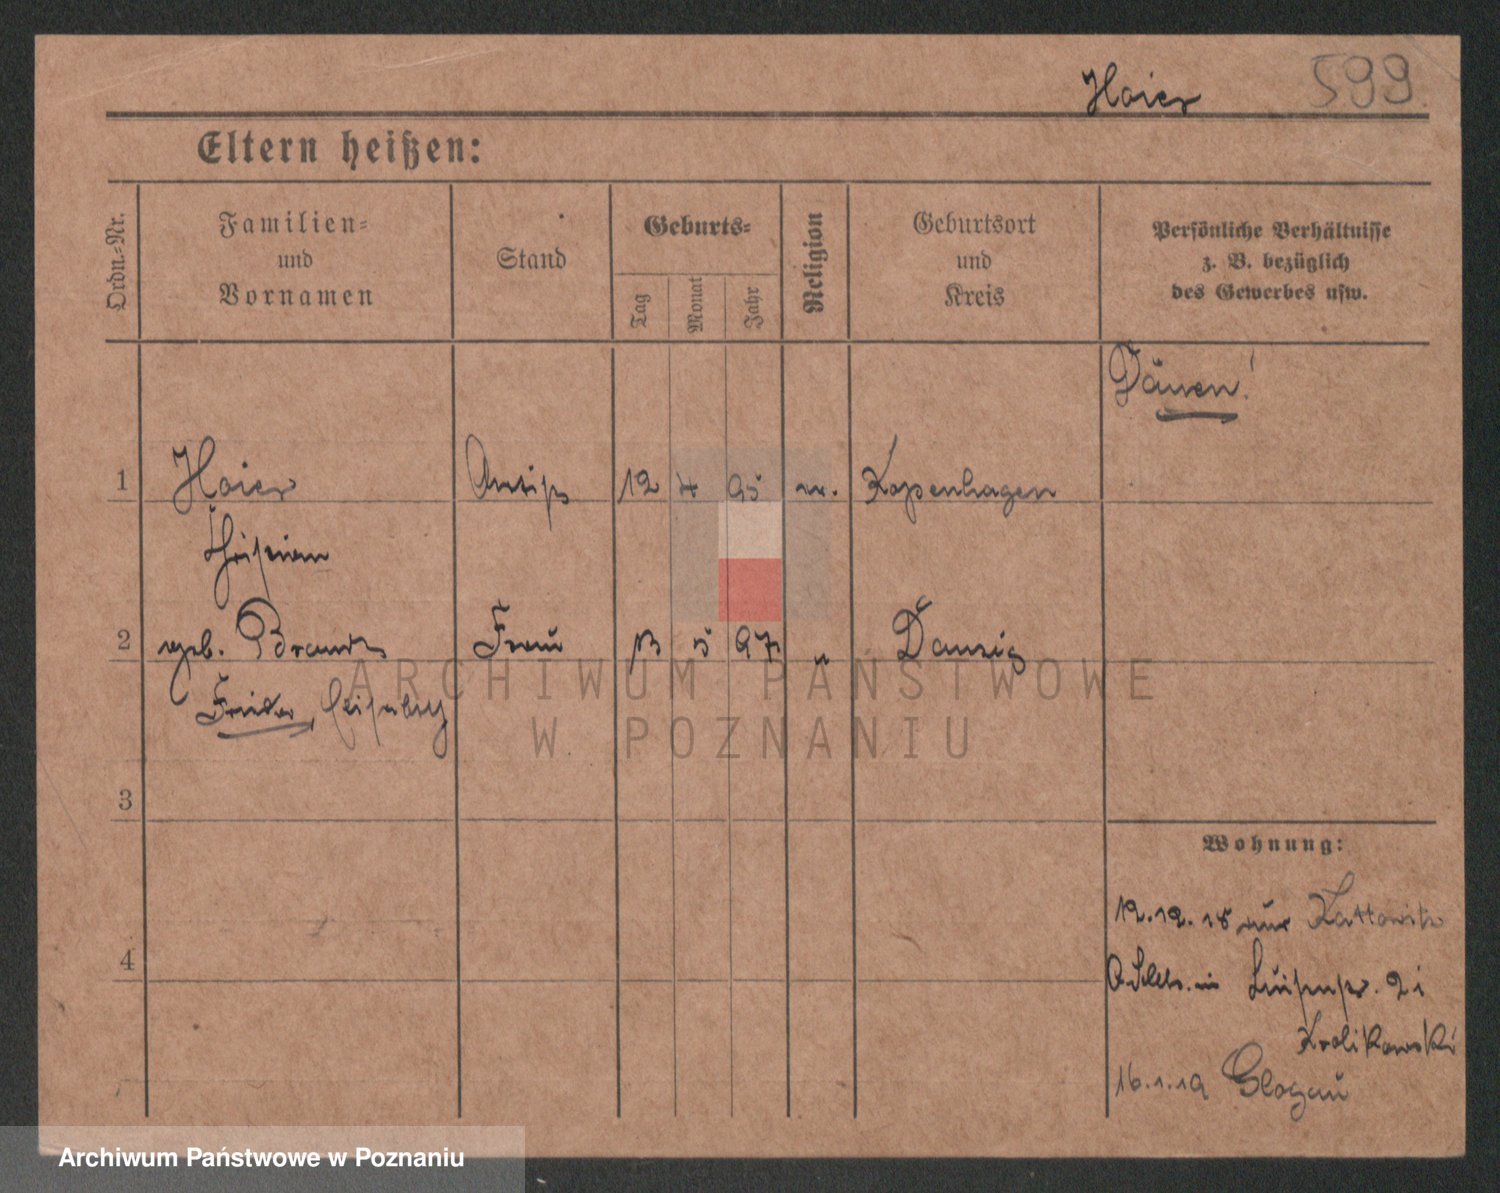 Hoier 599
Eltern heißen:
Ordn.-Nr.
Familien-
und
Vornamen
Stand
Geburts-
Tag
Monat
Jahr
Religion
Geburtsort
und
Kreis
Persönliche Verhältnisse
z. B. bezüglich
des Gewerbes usw.
Dänen!
1 Hoier Artist 12 4 95 Kopenhagen
2 geb. Brandt Frau 5 97 " Danzig
Frieda, Elisabeth
3
Wohnung:
4
12.12.18 aus Kattowitz
Luisenstr. 2
Krolikowski
16.1.19 Glogau
ARCHIWUM PAŃSTWOWE
W POZNANIU
Archiwum Państwowe w Poznaniu